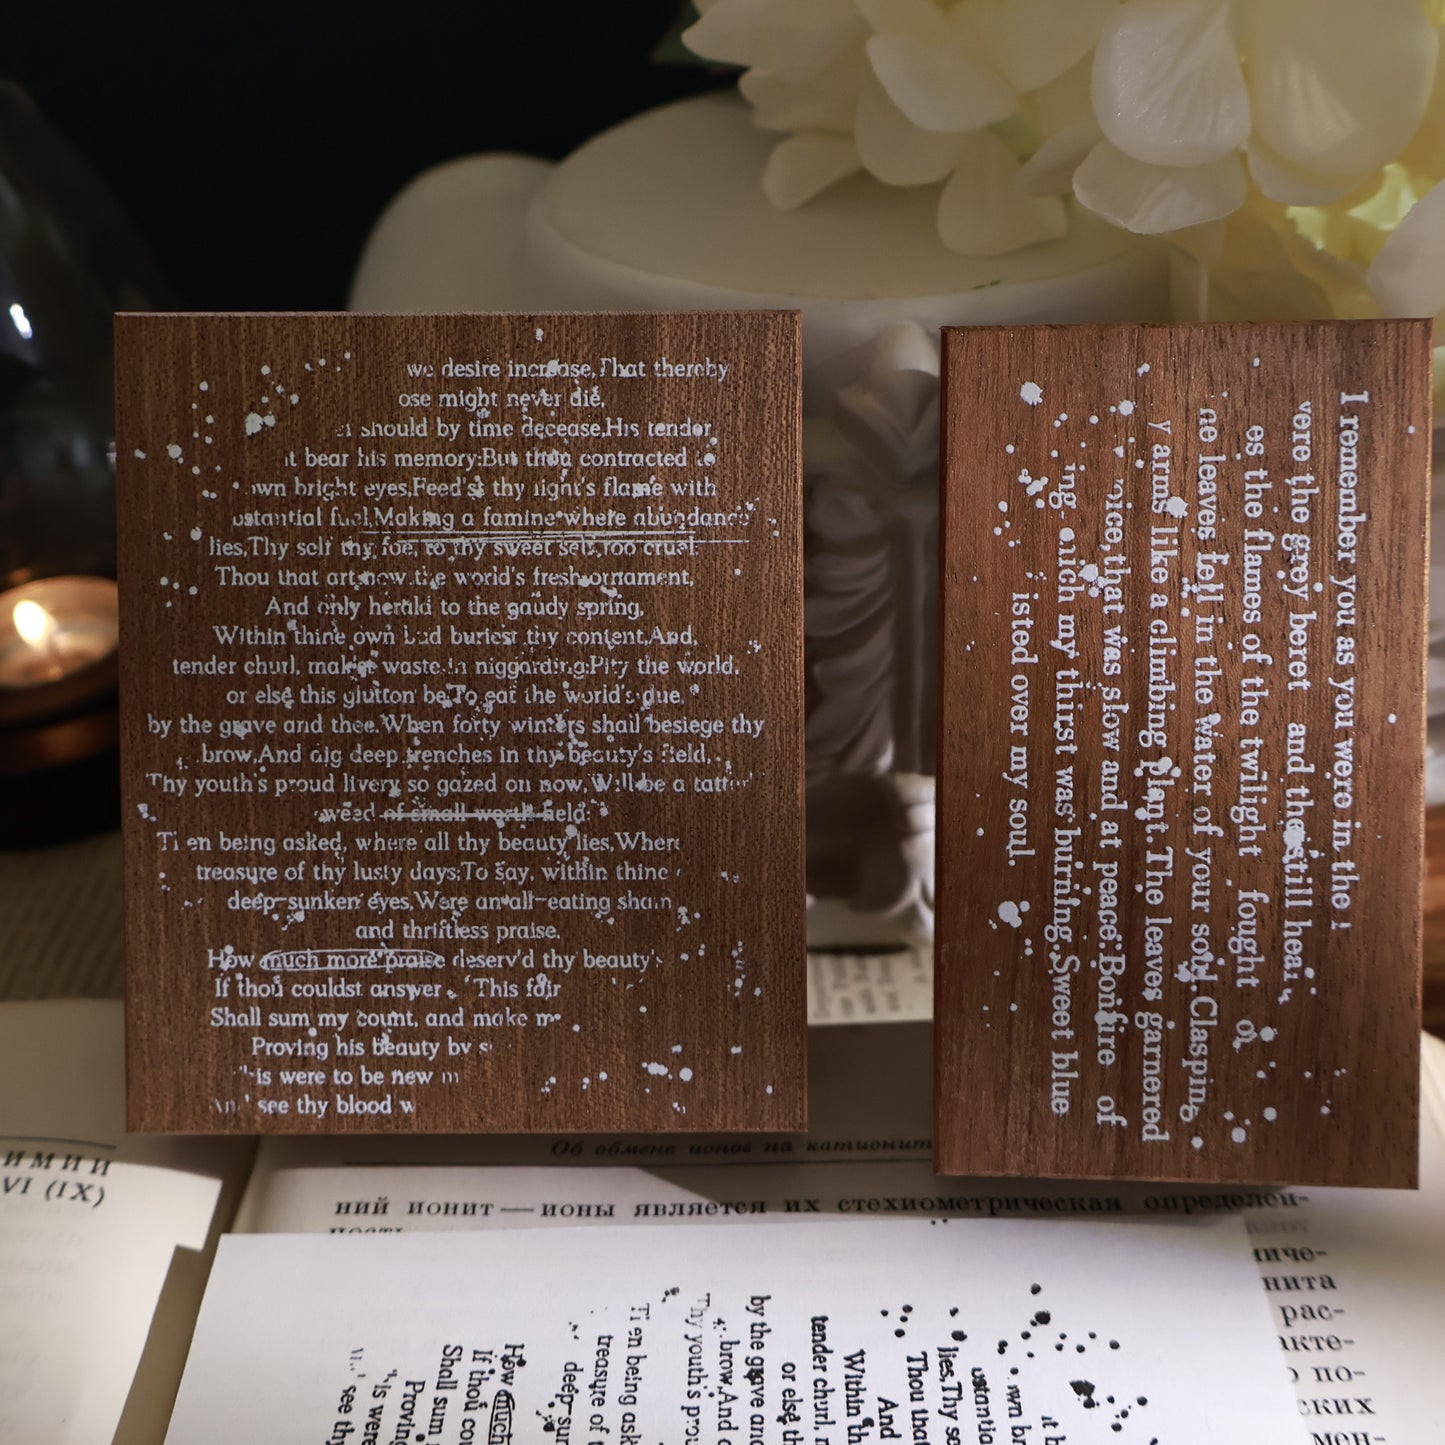 we desire increase,That thereby
ose might never die,
should by time decease,His tender
it bear his memory:But thou contracted to
own bright eyes,Feed'st thy light's flame with
bstantial fuel,Making a famine where abundance
lies,Thy self thy foe, to thy sweet self too cruel:
Thou that art now the world's fresh ornament,
And only herald to the gaudy spring,
Within thine own bud buriest thy content,And,
tender churl, mak'st waste in niggarding:Pity the world,
or else this glutton be,To eat the world's due,
by the grave and thee.When forty winters shall besiege thy
brow,And dig deep trenches in thy beauty's field,
Thy youth's proud livery so gazed on now,Will be a tatter
weed of small worth held:
T en being asked, where all thy beauty lies,Where
treasure of thy lusty days;To say, within thine
deep-sunken eyes,Were an all-eating sham
and thriftless praise.
How much more praise deserv'd thy beauty's
If thou couldst answer 'This fair
Shall sum my count, and make m
Proving his beauty by s
is were to be new m
see thy blood w
I remember you as you were in the l
were the grey beret and the still hear
es the flames of the twilight fought o
he leaves fell in the water of your soul.Clasping
y arms like a climbing plant.The leaves garnered
voice,that was slow and at peace.Bonfire of
ing which my thirst was burning.Sweet blue
isted over my soul.
ИМИИ
VI (IX)
Об обмене ионов на катионит
ний ионит — ионы является их стехиометрическая определен-
ность
миче-
нита
рас-
акте-
о по-
ских
мен-
it b
own br
ustantia
lies,Thy se
Thou that
And
Within th
tender churl, m
or else th
by the grave and
brow,And d
Thy youth's prou
Ti en being ask
treasure of t
deep-sun
How much
If thou cou
Shall sum
Proving
is were
see thy